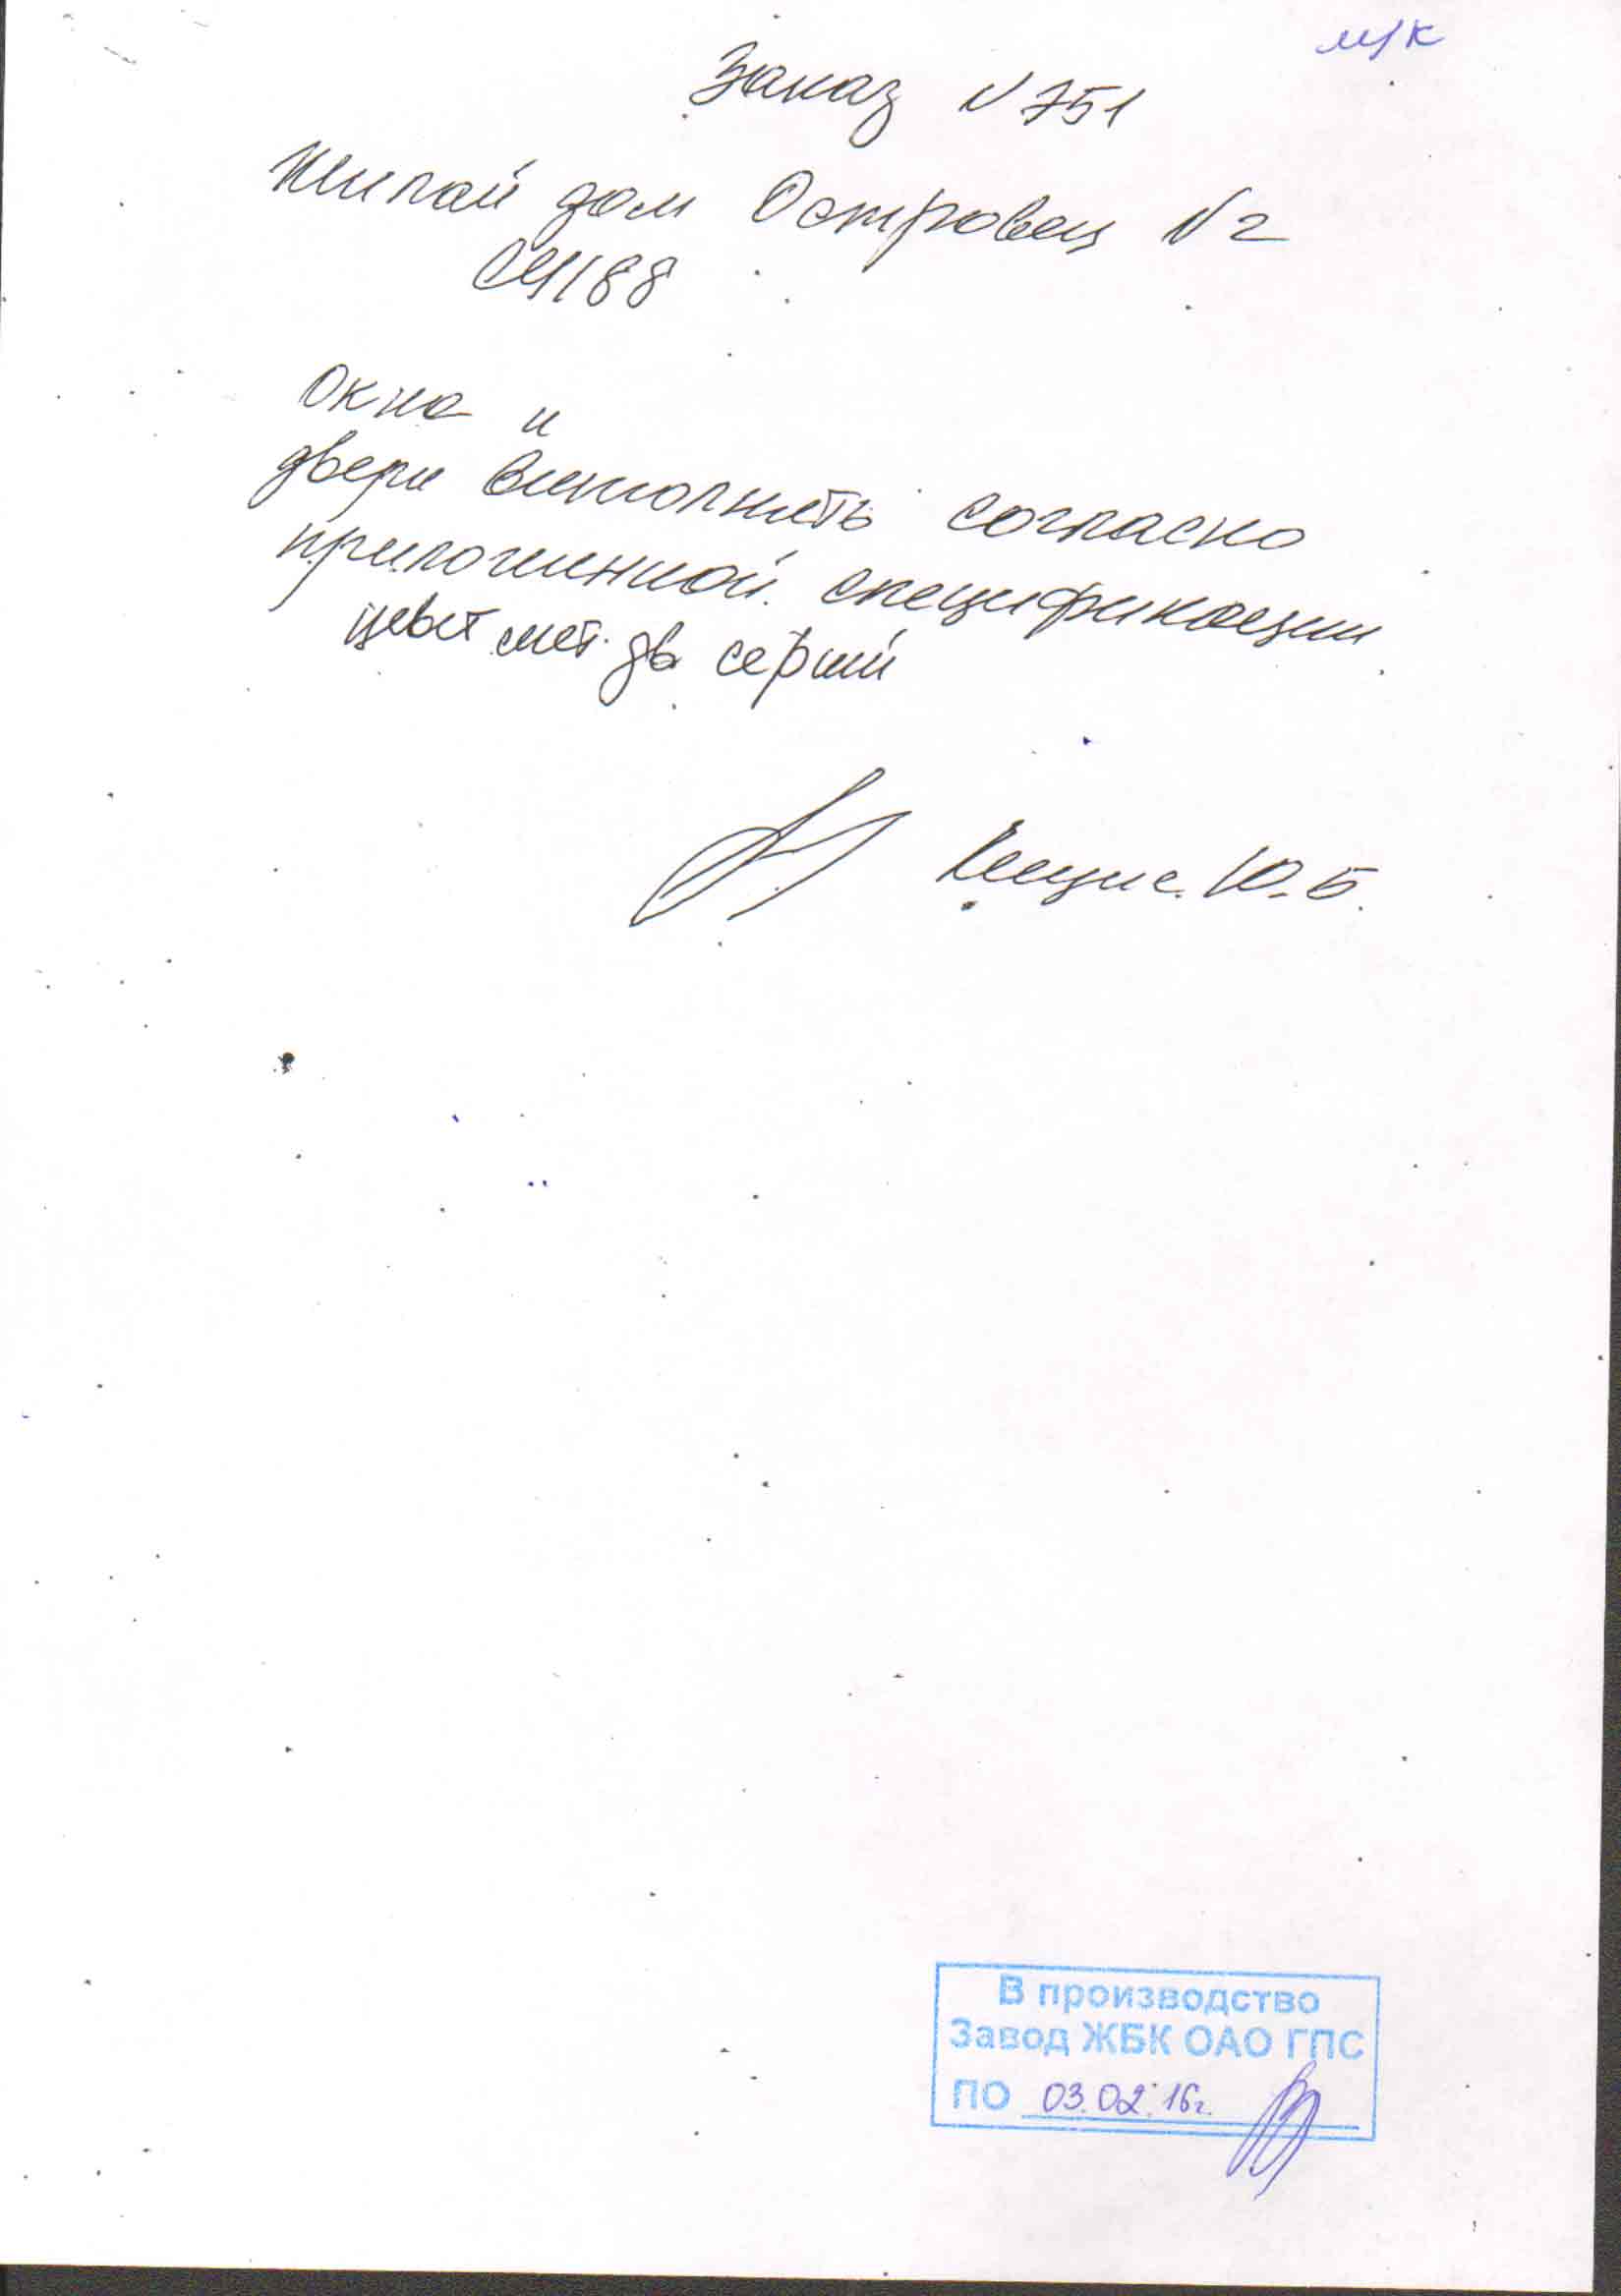 м/к
Заказ N 751
Жилой дом Островец N2
Окна и
двери выполнить согласно
приложенной спецификации
цвет мет. дв серый
Ю.Б.
В производство
Завод ЖБК ОАО ГПС
ПО 03.02.16г.